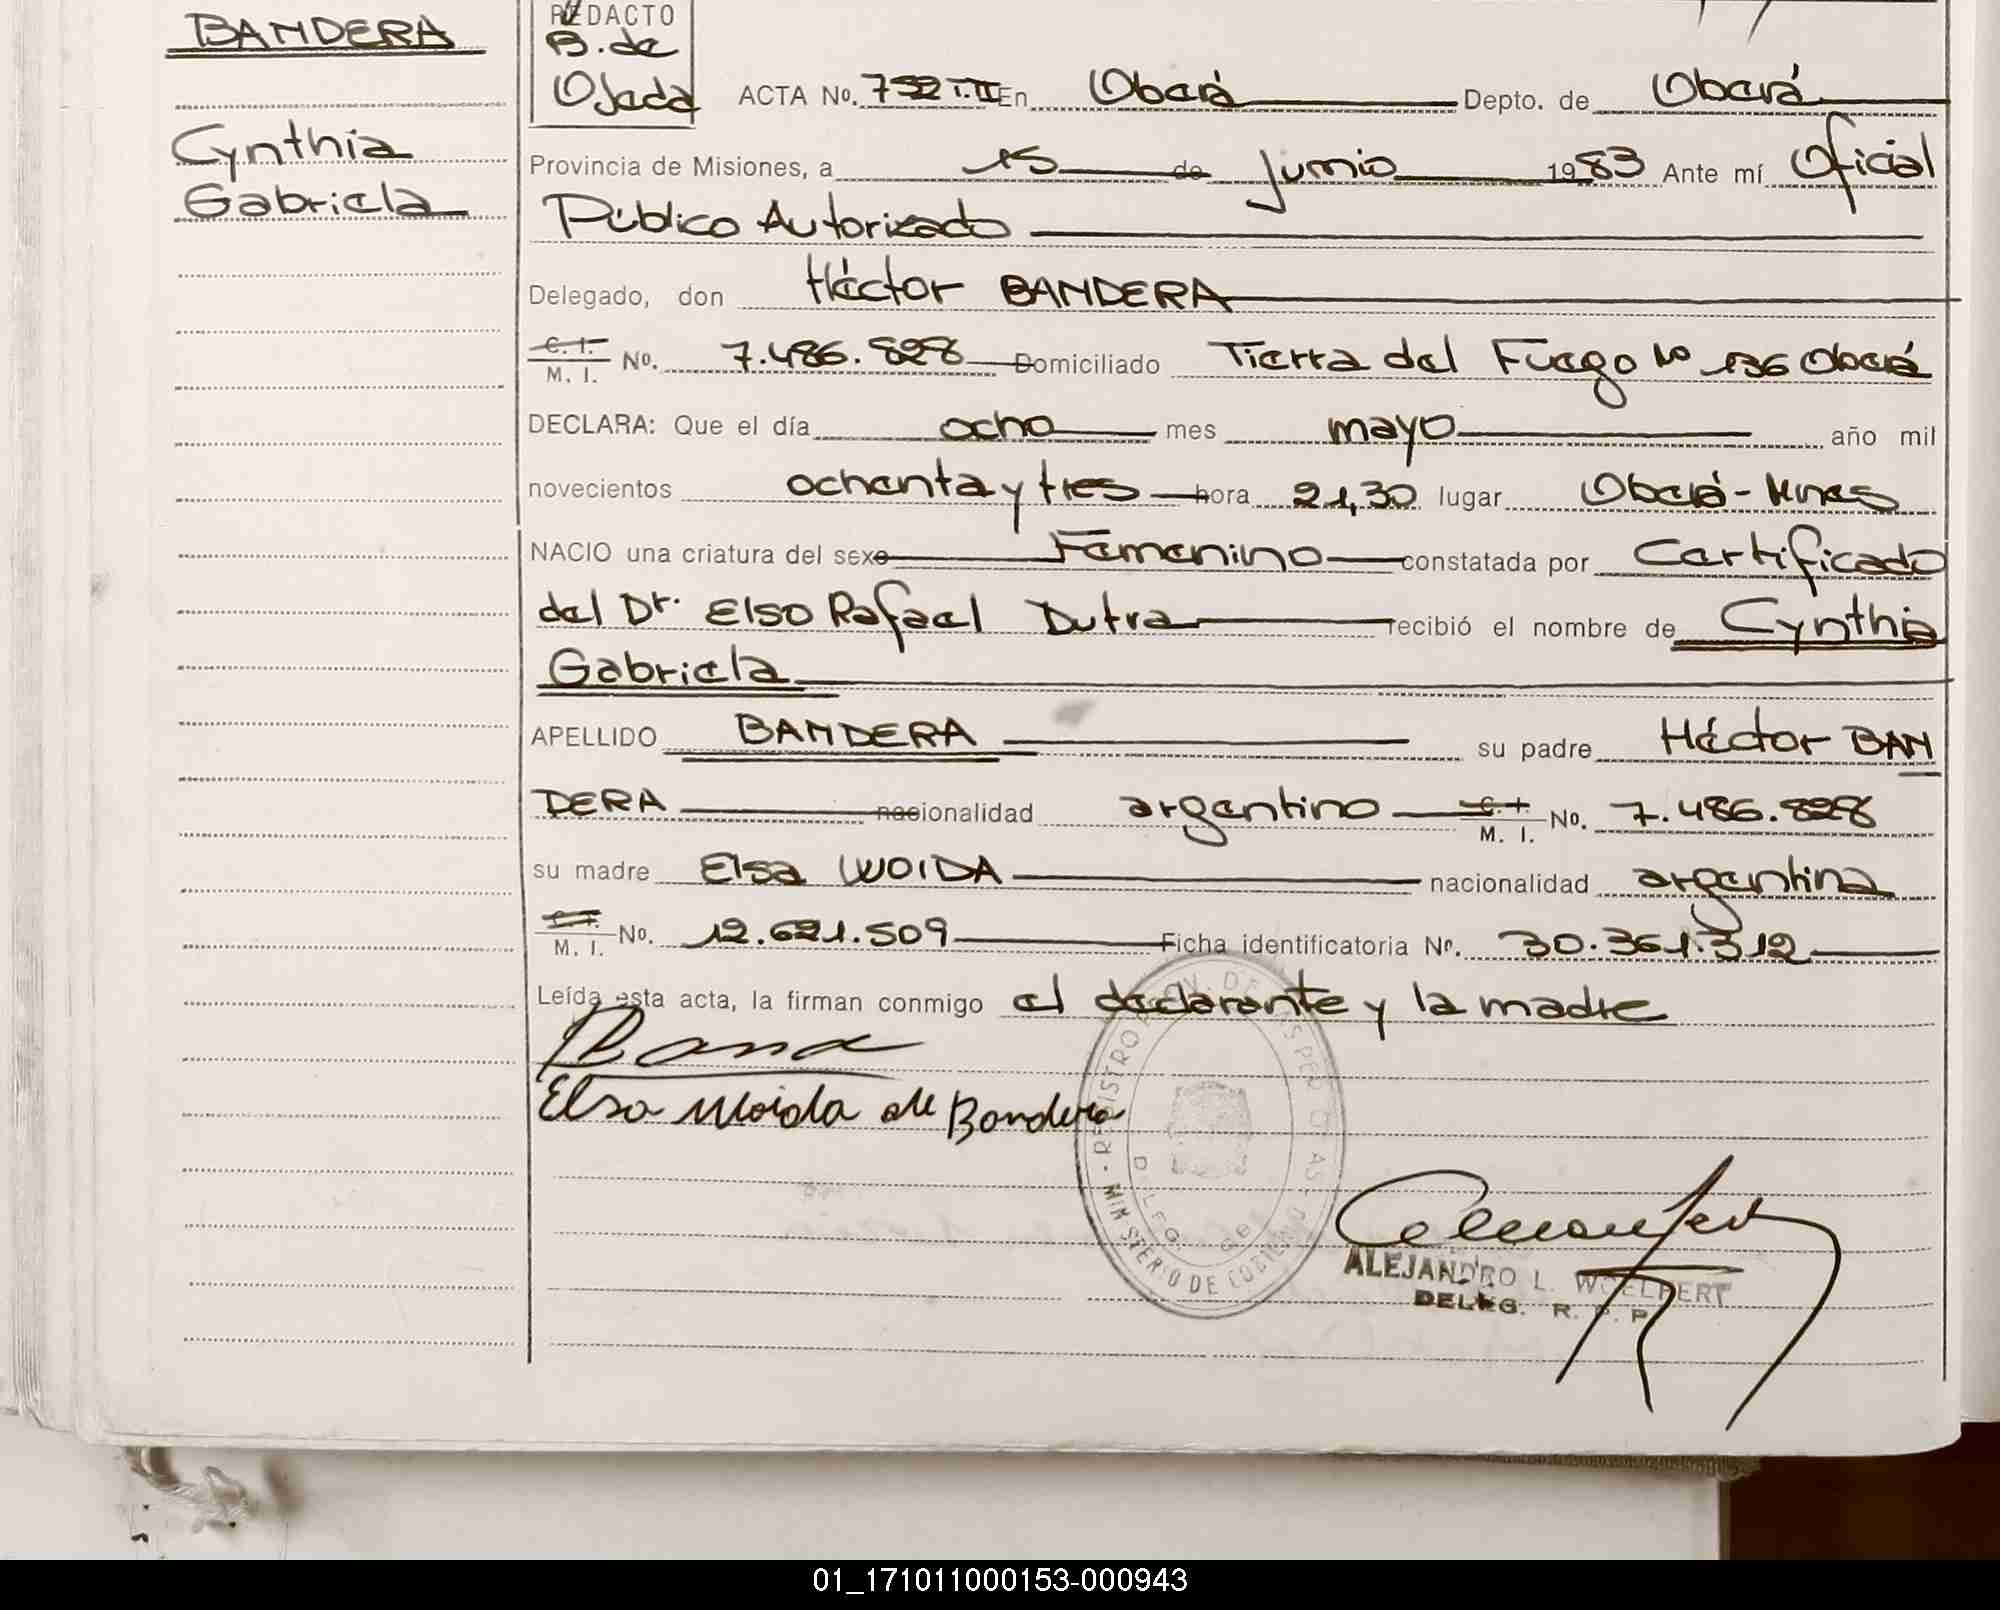 BANDERA
Cynthia
Gabriela
REDACTO
B. de
Ojeda
ACTA No. 732 T.II En Oberá Depto. de Oberá
Provincia de Misiones, a 15 de junio 1983 Ante mí Oficial
Público Autorizado
Delegado, don Héctor BANDERA
C. I.
M. I. No. 7.486.828 Domiciliado Tierra del Fuego No 136 Oberá
DECLARA: Que el día ocho mes mayo año mil
novecientos ochenta y tres hora 21,30 lugar Oberá - Mnes
NACIO una criatura del sexo Femenino constatada por Certificado
del Dr. Elso Rafael Dutra recibió el nombre de Cynthia
Gabriela
APELLIDO BANDERA su padre Héctor BAN
DERA nacionalidad argentino C. I.
M. I. No. 7.486.828
su madre Elsa WOIDA nacionalidad argentina
C. I.
M. I. No. 12.621.509 Ficha identificatoria No. 30.361.312
Leída esta acta, la firman conmigo el declarante y la madre
Elsa Woida de Bandera
REGISTRO
MINISTERIO DE
DELEG. de
ALEJANDRO L. WOELPERT
DELEG. R. P. P.
01_171011000153-000943